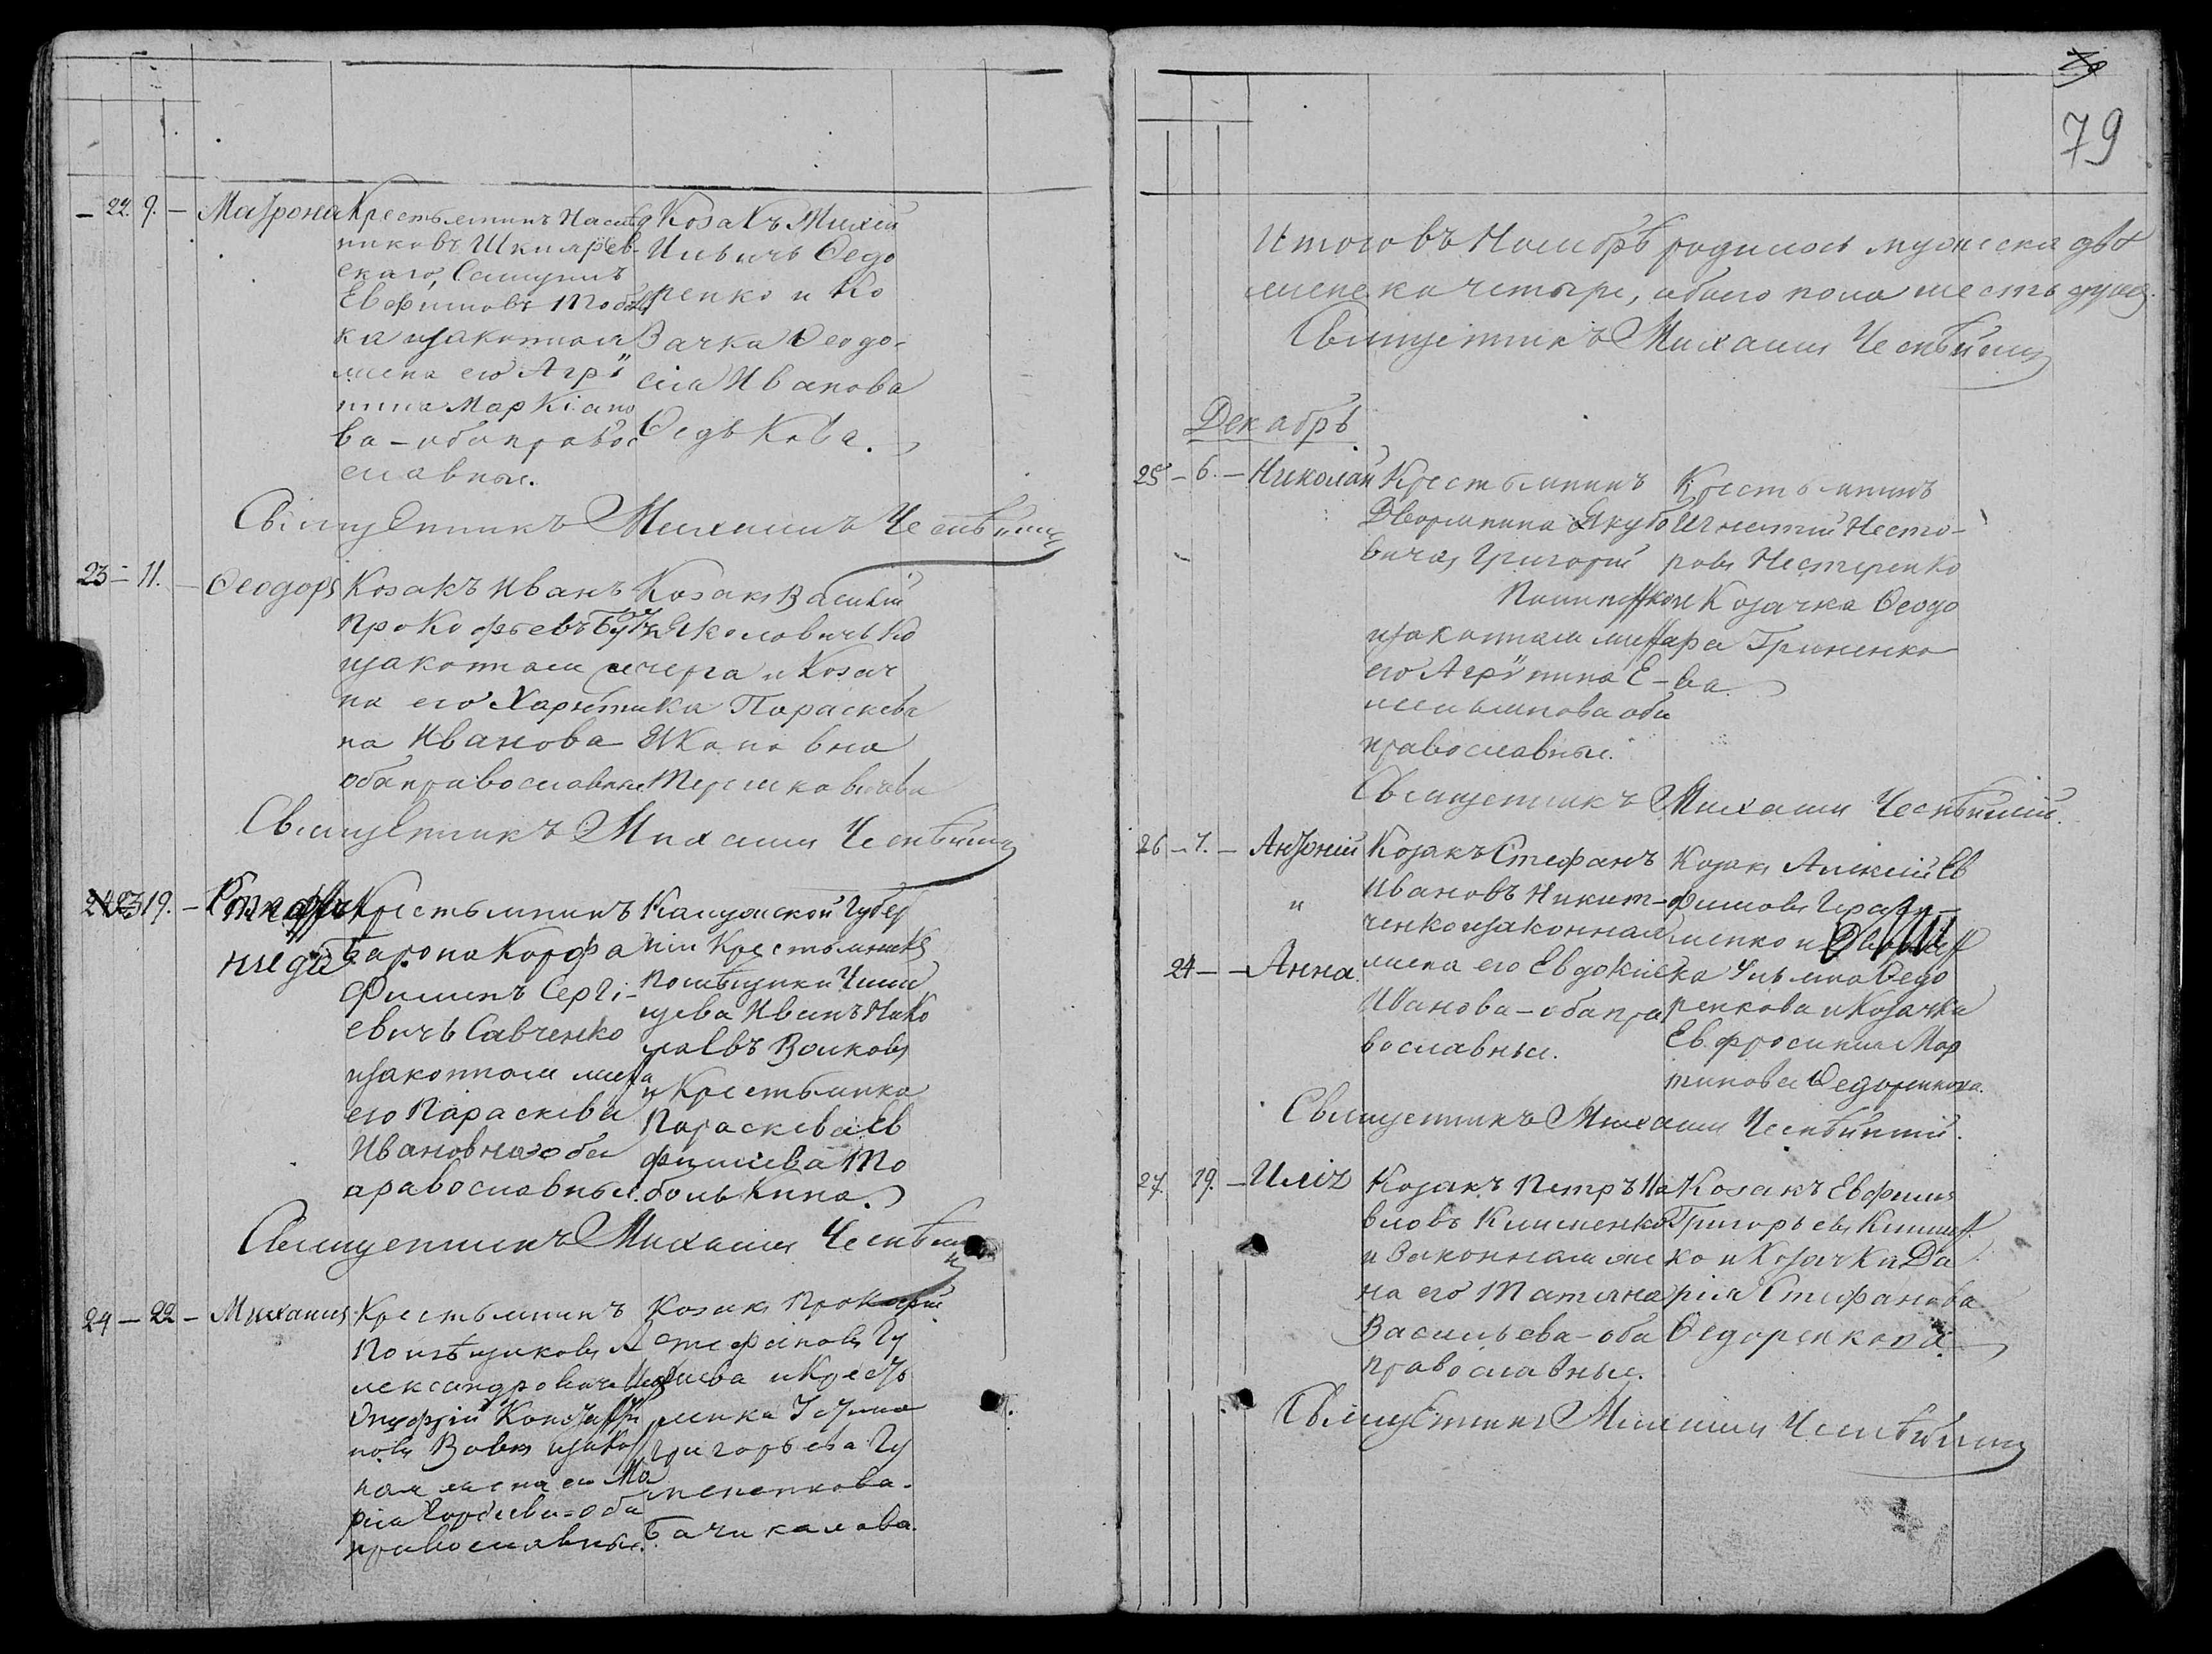 22. 9. — Матрона
Крестьянинъ Наслѣд
никовъ Шклярев-
скаго, Самуилъ
Евфимовъ
ка и законная
жена его Агрі
пина Маркіано
ва — оба право
славные.
Козакъ
Ильичъ Ѳедо
ренко и Ко
зачка Ѳеодо-
сія Иванова
Ѳедькова.
Священникъ Михаилъ
23 — 11. — Ѳеодоръ
Козакъ Иванъ
Прокофьевъ
и законная же
на его Харьти
на Иванова
оба православные
Козакъ Василій
Яковлевичъ Ко
черга и Козач
ка Параскева
Терешковичева
Священникъ Михаилъ
23 19. —
Крестьянинъ
Барона Корфа
Филипъ Сергі-
евичъ Савченко
и законная жена
его Параскева
Ивановна оба
православные.
Калужской Губер
ніи Крестьянинъ
Помѣщика
Иванъ Нико
лаевъ Волковъ
и Крестьянка
Параскева Ев
фимиева То
болькина.
Священникъ Михаилъ
24 — 22 — Михаилъ
Крестьянинъ
Помѣщиковъ А
лександровича
Онуфрій Константи
новъ Вовкъ и закон
ная жена его Ма
рія Гордѣева = оба
православные.
Козакъ Прокофій
Стефановъ Гу
и Кресть
янка Устина
Григорьева Гу
Священникъ Михаилъ
79
79
Итого въ Ноябрѣ родилось мужеска два
женска четыре, обоего пола шесть душъ.
Священникъ Михаилъ
Декабрь
25 — 6. — Николай
Крестьянинъ
Дворянина Якубо
вича, Григорій
и законная жена
его Агріпина Е-
мельянова оба
православные.
Крестьянинъ
Игнатій Несто-
ровъ Нестеренко
и Козачка Ѳеодо
ра Гриненко
ва.
Священникъ Михаилъ
26 — 7. — Антоній
"
24 — — Анна
Козакъ Стефанъ
Ивановъ Никит-
ченко и законная
жена его Евдокия
Иванова — оба пра
вославные.
Козакъ Алексій Ев
фимовъ Гераси-
менко и
ка Ульяна Ѳедо
ренкова и Козачка
Евфросинія Мар
тинова Ѳедоренкова.
Священникъ Михаилъ
27. 19. — Илія
Козакъ Петръ Па
вловъ Клименко
и Законная же
на его Татьяна
Васильева — оба
православные.
Козакъ Евфимъ
Григорьевъ Климен
ко и Козачка Да
рія Стефанова
Ѳедоренкова.
Священникъ Михаилъ